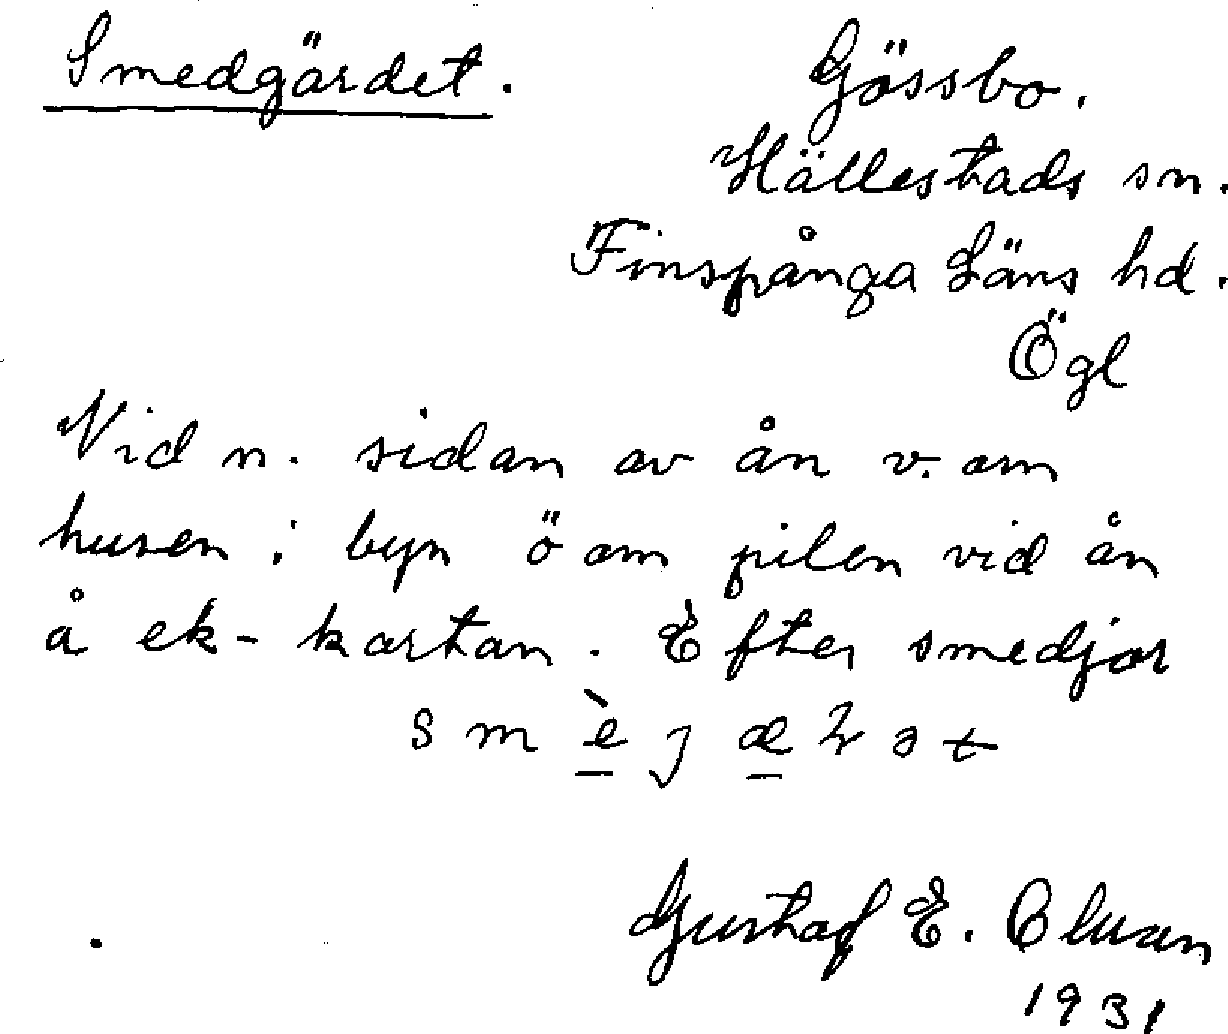 Smedgärdet.
Gössbo.
Hällestads sn.
Finspånga Läns hd.
Ögl
Vid n. sidan av ån v. om
husen i byn ö om pilen vid ån
å ek-kartan. Efter smedjor
Gustaf E.
1931